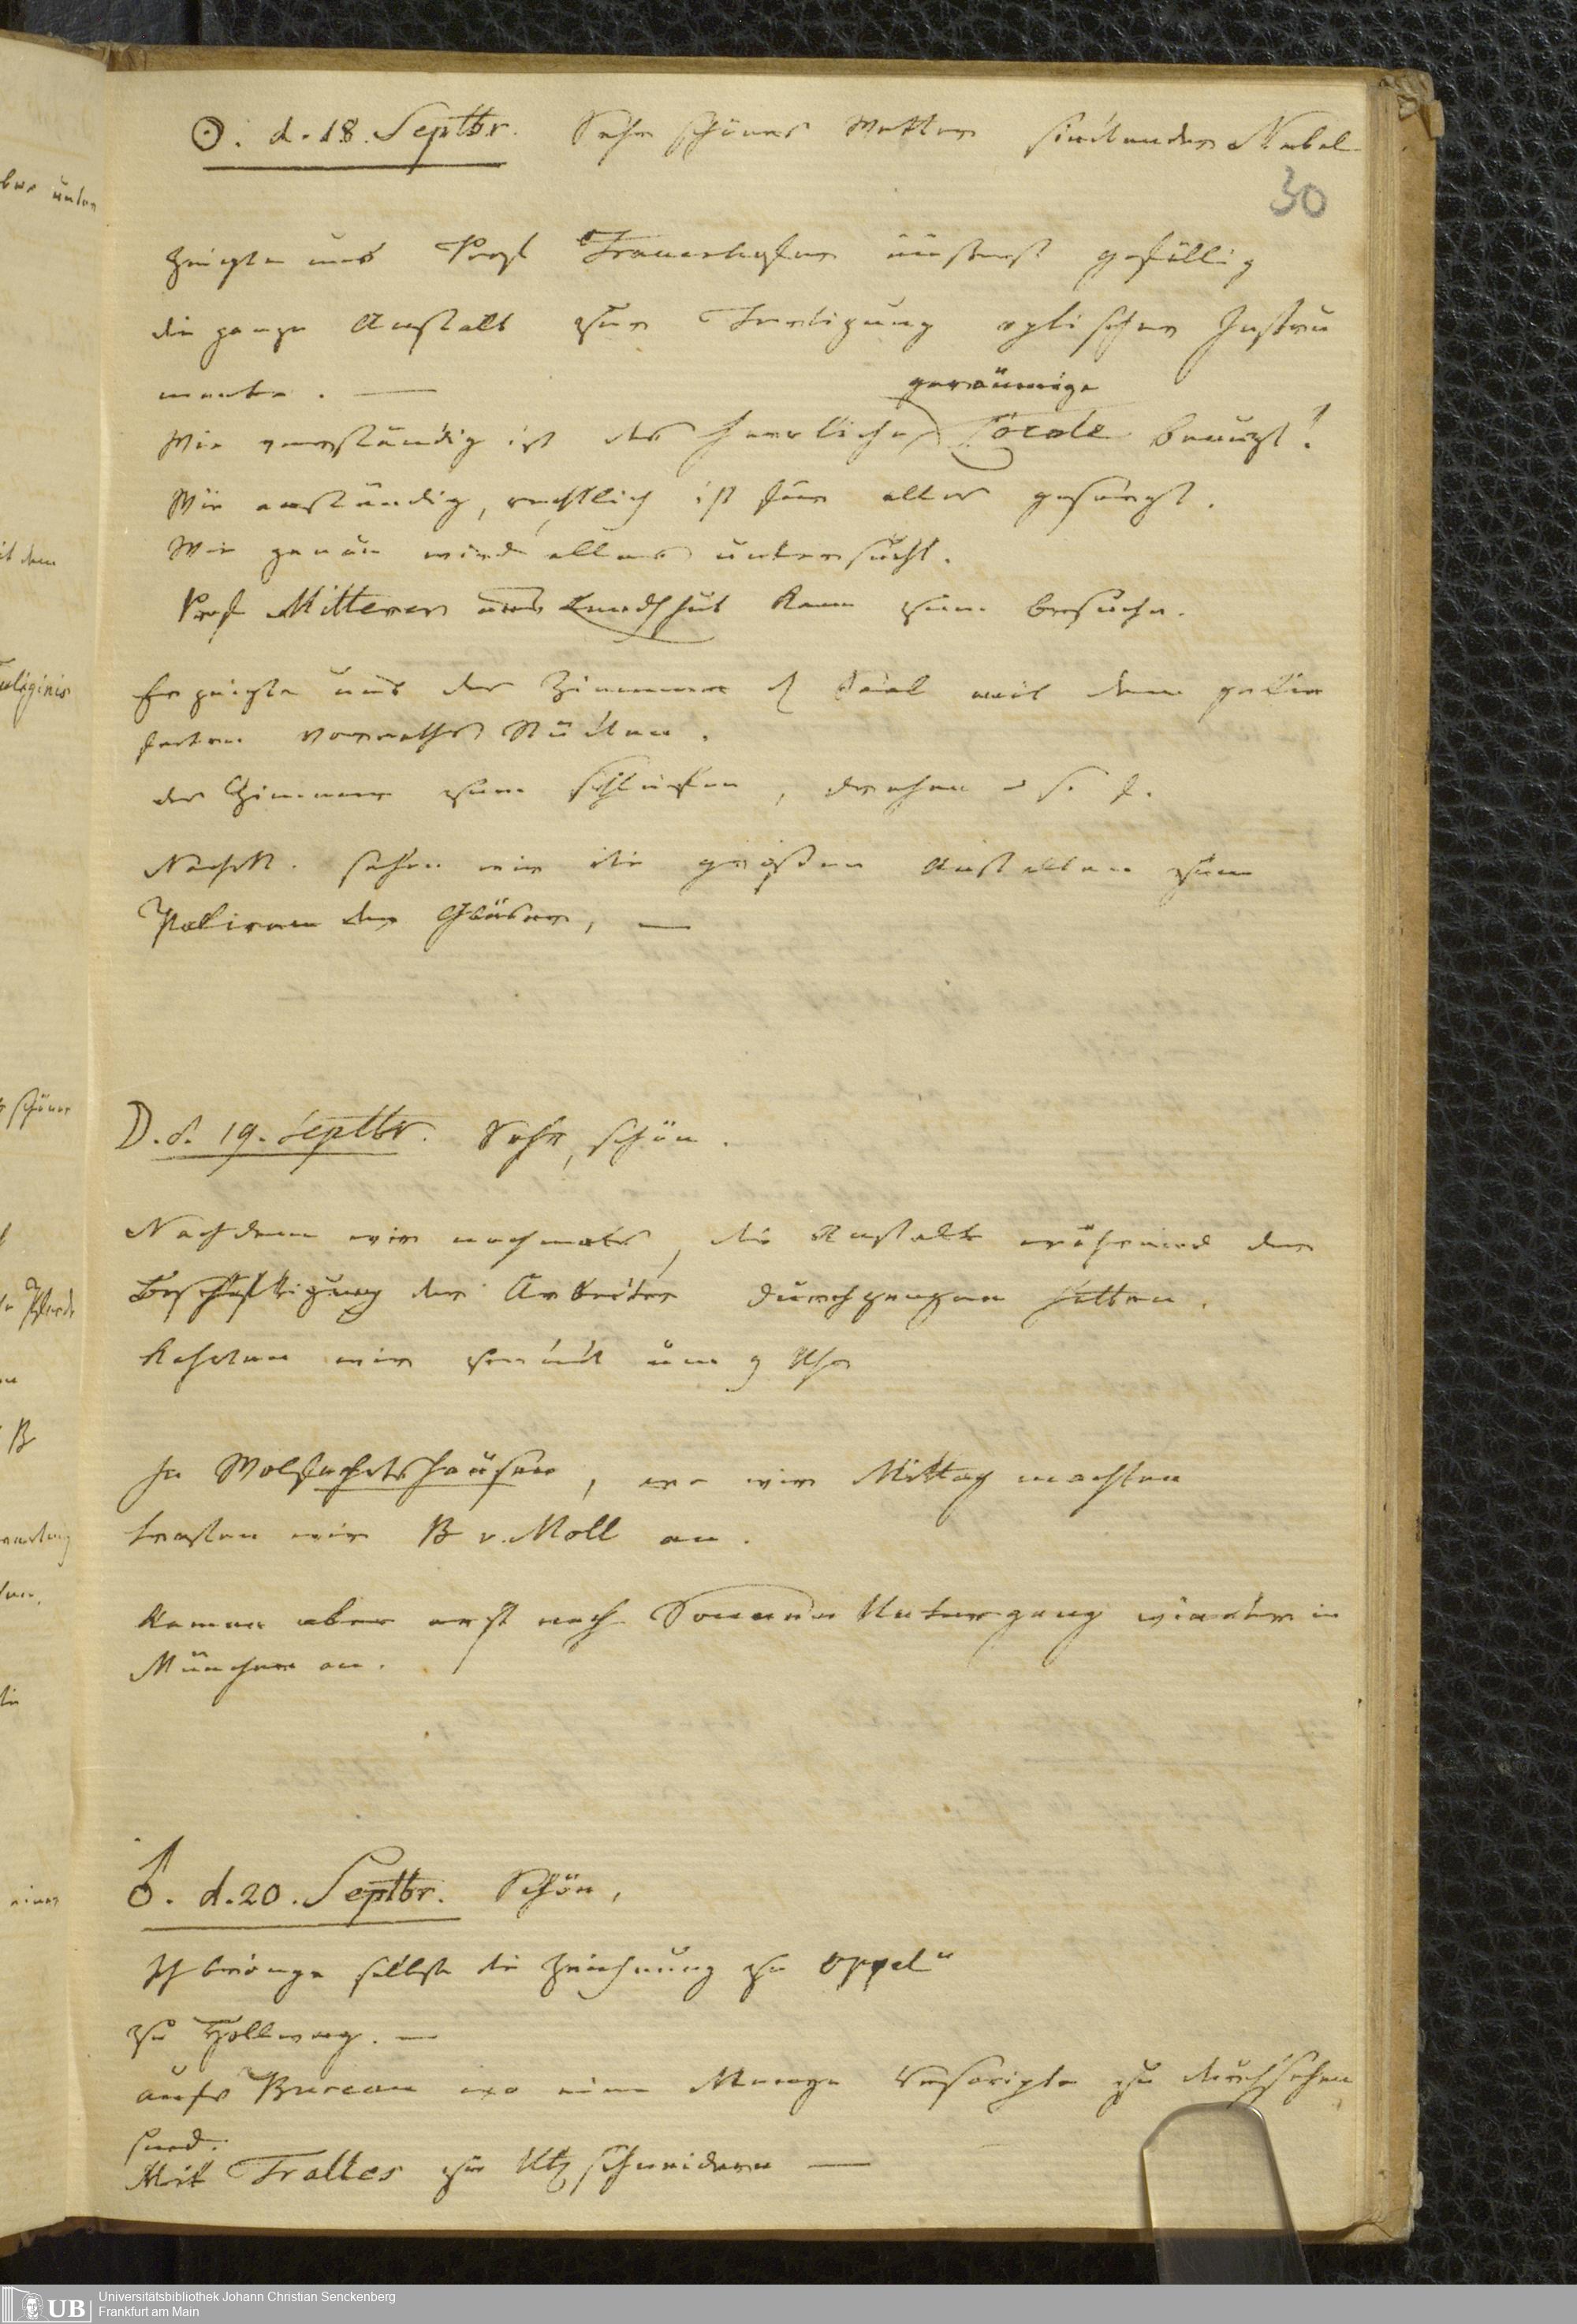 ☉. d. 18. Septbr. Sehr schönes Wetter sinkender Nebel
30
Zeigte uns Prof Frauenhofer äusserst gefällig
die ganze Anstalt zur Fertigung optischer Instru
mente. —
geräumige
Wie verständig ist das herrliche Locale benuzt!
Wie anständig, rechtlich ist für alles gesorgt.
Wie genau wird alles untersucht.
Prof Mitterer aus Landshut kam zum besuche.
Er zeigte uns der Zimmer u Saal mit dem
Vorraths Stücken.
der Zimmer zum Schleifen, drehen u s. f.
Nachtt. sahen wir die großen Anstalten zum
Poliren der Gläser, —
☽. d. 19. Septbr. Sehr schön.
Nachdem wir nochmals, die Anstalt während der
Beschäftigung der Arbeiter durchgangen hatten.
kehrten wir zurück um 9 Uhr
In Wolfrathshausen, wo wir Mittag machten
trafen wir B v. Moll an.
Kamen aber erst nach Sonnen Untergang wieder in
München an.
♂. d. 20. Septbr. Schön,
Ich bringe selbst die Zeichnung zu Oppel
zu Hollweg. —
aufs Bureau wo eine Menge Rescripte zu durchsehen
sind.
Mit Tralles zu Utzschneidern —
Universitätsbibliothek Johann Christian Senckenberg
Frankfurt am Main
UB